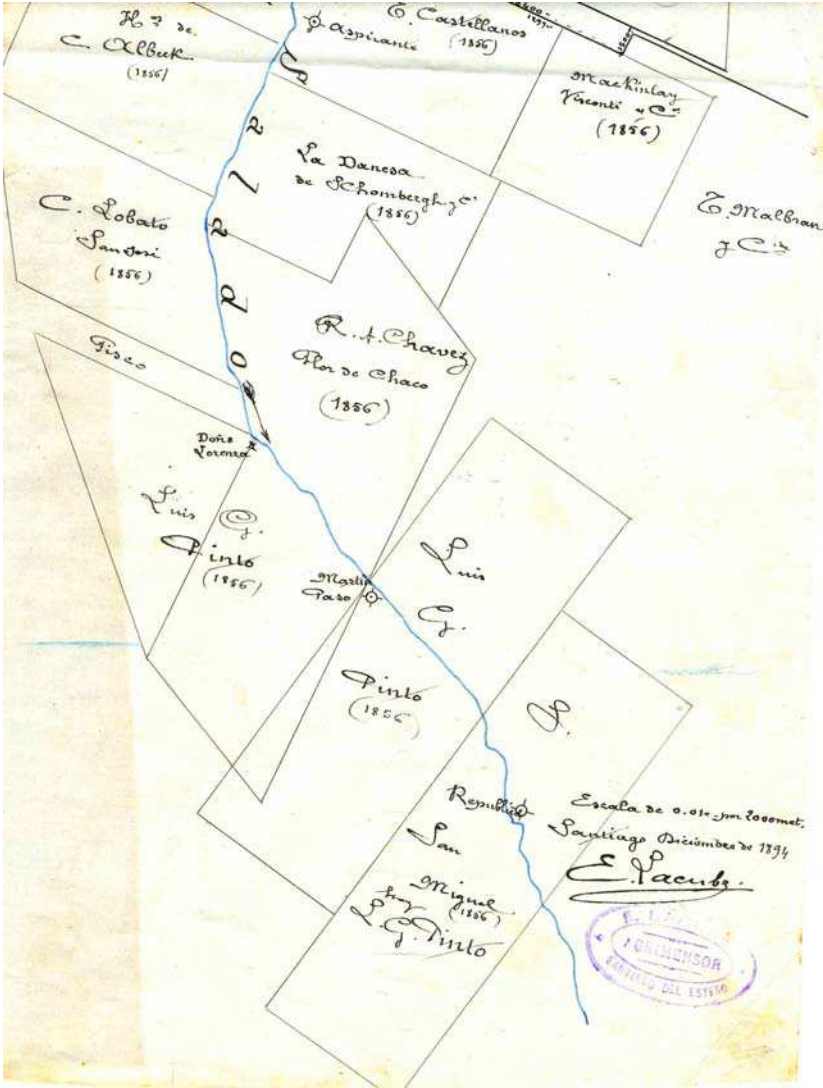 Hos de
C. Olbuck
(1856)
Aspirante
E. Castellanos
(1856)
1500
Mackinlay
Visconti y Ca
(1856)
Salado
La Danesa
de SChombergh y Ca
(1856)
C. Lobato
San José
(1856)
T. Malbran
y Cia
R. A. Chavez
Flor de Chaco
(1856)
Fisco
Doña
Lorenza
Luis G.
Pinto
(1856)
Martin
Paso
Luis
G.
Pinto
(1856)
S.
República
San
Miguel
(1856)
hoy
L. G. Pinto
Escala de 0.01c por 2000 met.
Santiago Diciembre de 1894
E. Lacube.
AGRIMENSOR
SANTIAGO DEL ESTERO